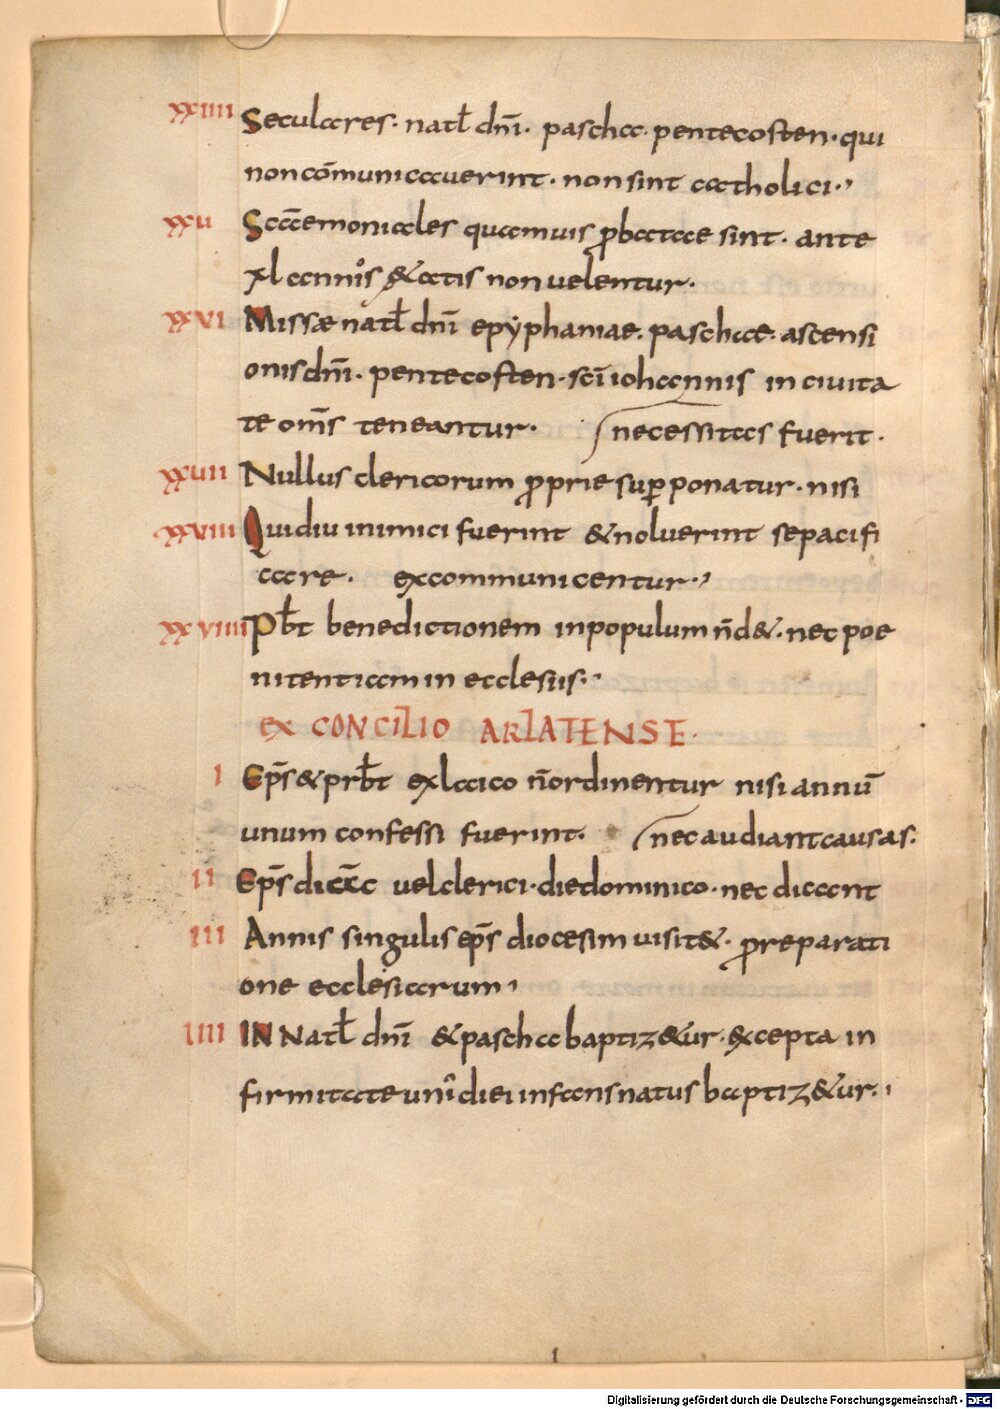 xxiiii Seculares· natł dnī· pascha· pentecosten· qui
non com̄unicauerint· non sint catholici·
xxu Scāemoniales quamuis p̄batae sint· ante
xl annos &atis non uelentur·
xxvi Missæ natł dnī epẏphaniae· paschae· ascensi
onis dnī· pentecosten· scī iohannis in ciuita
te om̄s teneantur·
necessitas fuerit·
xxuii Nullus clericorum proprie superponatur· nisi
xxviii Qui diu inimici fuerint & noluerint se pacifi
care· excommunicentur·
xxviiii Pƀt benedictionem in populum n̄ d&· nec poe
nitentiam in ecclesiis·
ex CONCILIO ARLATENSE·
i Ep̄s & prƀt ex laico n̄ ordinentur nisi annū
unum confessi fuerint· nec audiant causas·
ii Ep̄s diac̄ uel clerici· die dominico· nec dicant
iii Annis singulis ep̄s diocesim uisit&· pro reparati
one ecclesiarum
iiii IN Natł dnī & pascha baptiz&ur· excepta in
firmitate unī diei infans natus baptiz&ur·
Digitalisierung gefördert durch die Deutsche Forschungsgemeinschaft - DFG